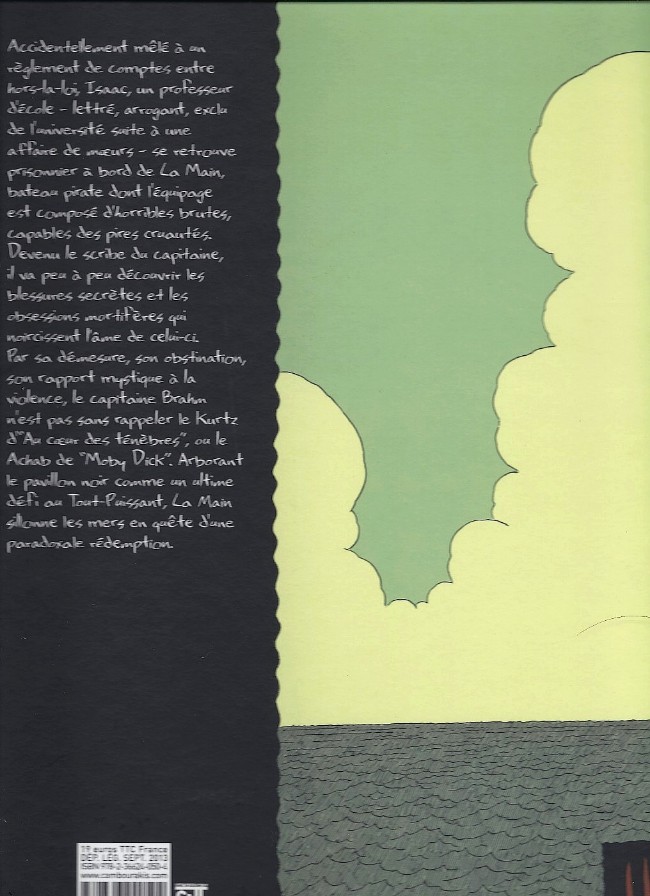 Accidentellement mêlé à un
règlement de comptes entre
hors-la-loi, Isaac, un professeur
d'école - lettré, arrogant, exclu
de l'université suite à une
affaire de mœurs - se retrouve
prisonnier à bord de La Main,
bateau pirate dont l'équipage
est composé d'horribles brutes,
capables des pires cruautés.
Devenu le scribe du capitaine,
il va peu à peu découvrir les
blessures secrètes et les
obsessions mortifères qui
noircissent l'âme de celui-ci.
Par sa démesure, son obstination,
son rapport mystique à la
violence, le capitaine Brahm
n'est pas sans rappeler le Kurtz
d'"Au cœur des ténèbres", ou le
Achab de "Moby Dick". Arborant
le pavillon noir comme un ultime
défi au Tout-Puissant, La Main
sillonne les mers en quête d'une
paradoxale rédemption.
19 euros TTC France
DÉP. LÉG. SEPT. 2013
ISBN 978-2-36624-050-4
www.cambourakis.com